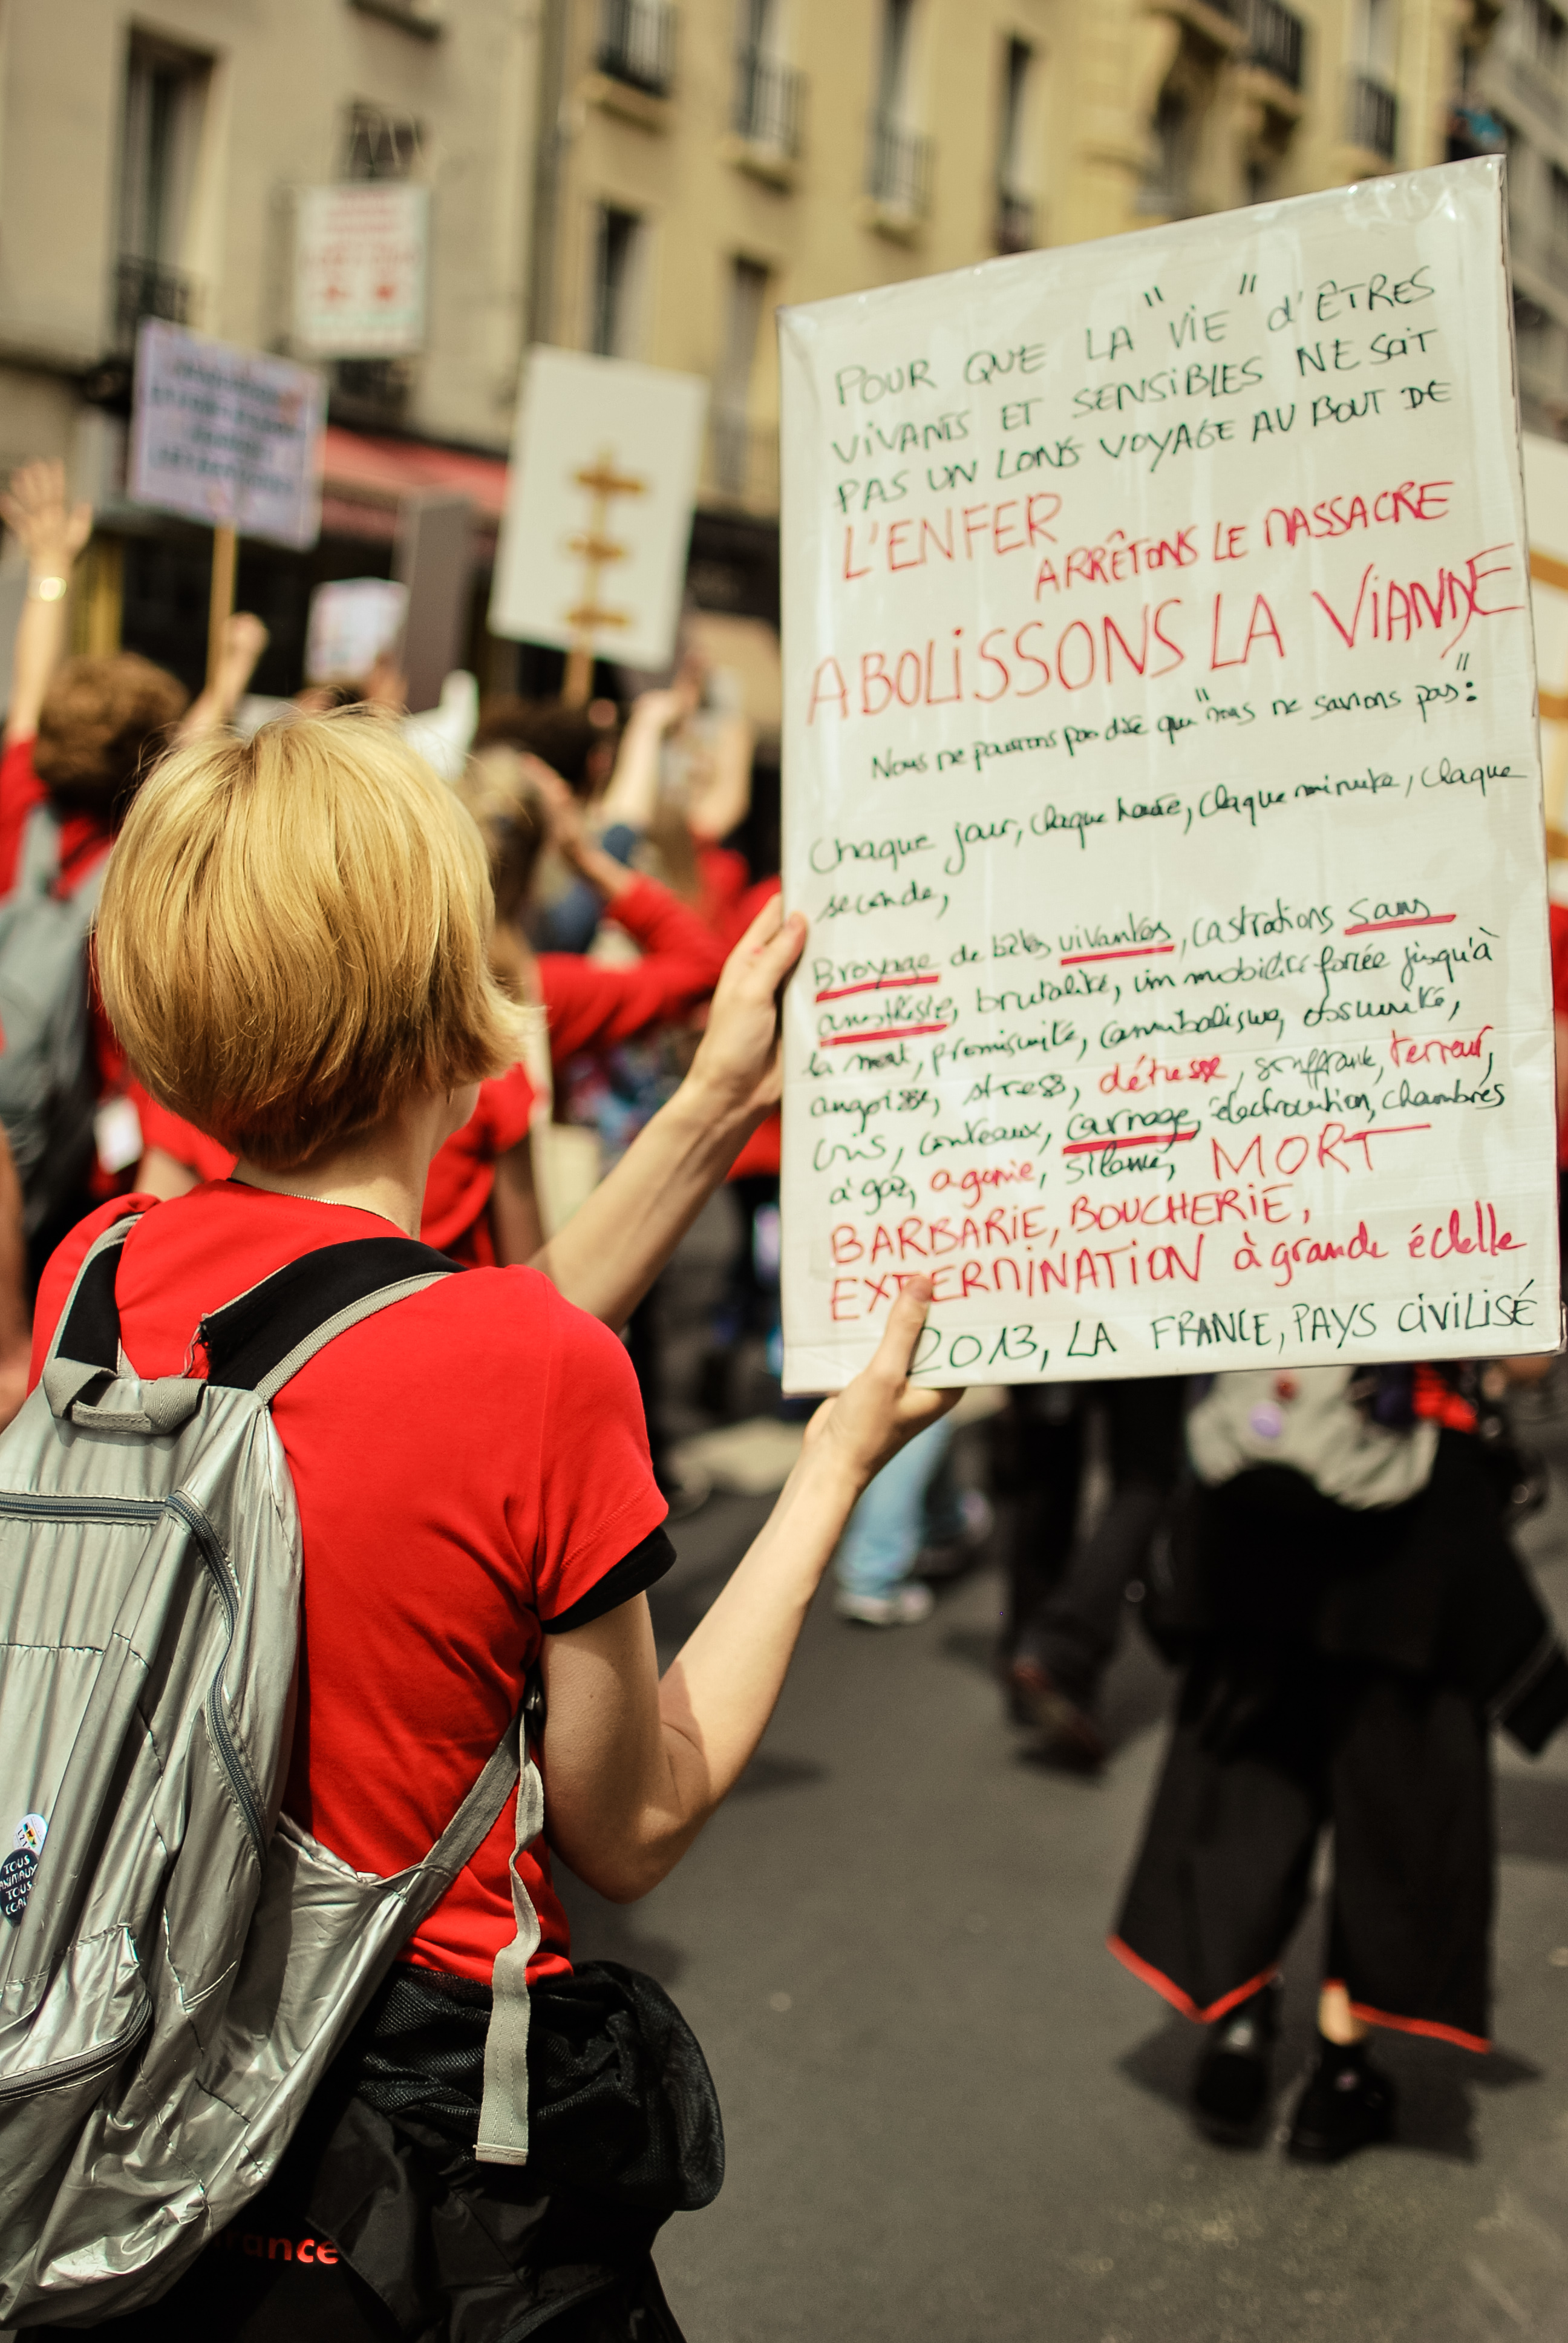 POUR QUE LA "VIE" d'ÊTRES
VIVANTS ET SENSIBLES NE SOIT
PAS UN LONG VOYAGE AU BOUT DE
L'ENFER
ARRÊTONS LE MASSACRE
ABOLISSONS LA VIANDE
Nous ne pourrons pas dire que "nous ne savions pas":
Chaque jour, chaque heure, chaque minute, chaque
seconde,
Broyage de bêtes vivantes, castrations sans
anesthésie, brutalité, immobilité forcée jusqu'à
la mort, promiscuité, cannibalisme, obscurité,
angoisse, stress, détresse, souffrance, terreur,
cris, couteaux, carnage, électrocution, chambres
à gaz, agonie, silence, MORT
BARBARIE, BOUCHERIE,
EXTERMINATION à grande échelle
2013, LA FRANCE, PAYS CIVILISÉ
TOUS
ANIMAUX
TOUS